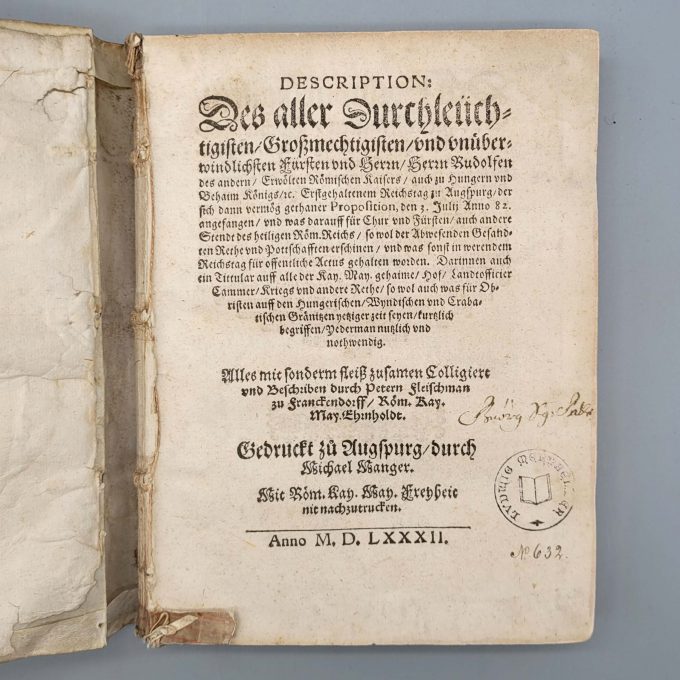 DESCRIPTION:
Des aller Durchleüch-
tigisten/Großmechtigisten/vnd vnüber-
windlichsten Fürsten vnd Herrn/Herrn Rudolfen
des andern/Erwölten Römischen Kaisers/auch zu Hungern vnd
Behaim Königs/ꝛc. Erstgehaltenem Reichstag zu Augspurg/der
sich dann vermög gethaner Proposition, den 3. Julij Anno 82.
angefangen/vnd was darauff für Chur vnd Fürsten/auch andere
Stendt des heiligen Röm. Reichs/so wol der Abwesenden Gesandt-
en Rethe vnd Pottschafften erschinen/vnd was sonst in werendem
Reichstag für offentliche Actus gehalten worden. Darinnen auch
ein Tittular auff alle der Kay. May. gehaime/Hof/Landtofficier
Cammer/Kriegs vnd andere Rethe/so wol auch was für Ob-
risten auff den Hungerischen/Wyndischen vnd Craba-
tischen Gränitzen yetziger zeit seyen/kurtzlich
begriffen/Yederman nutzlich vnd
nothwendig.
Alles mit sonderm fleiß zusamen Colligiert
vnd Beschriben durch Petern Fleischman
zu Franckendorff/Röm. Kay.
May. Ehrnholdt.
Gedruckt zů Augspurg/durch
Michael Manger.
Mit Röm. Kay. May. Freyheit
nit nachzutrucken.
Anno M. D. LXXXII.
No 632.